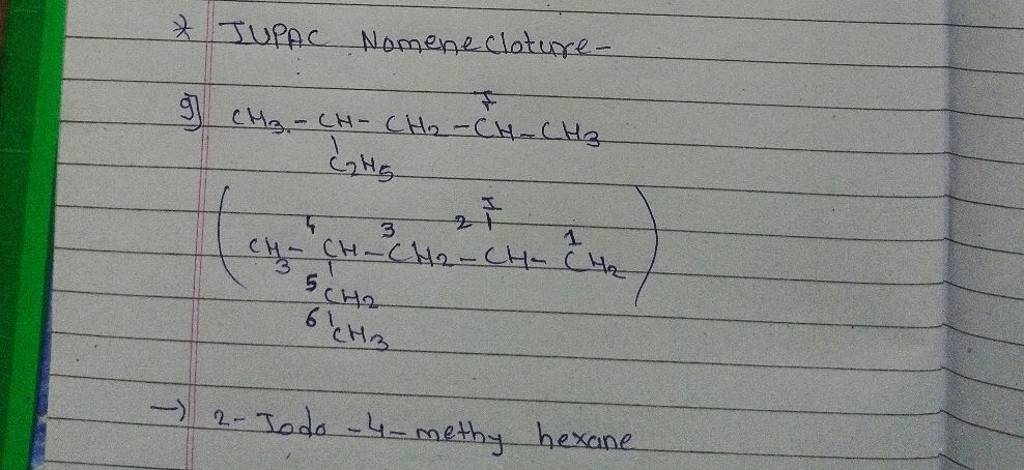 * IUPAC Nomeneclature-
I
g] CH3-CH-CH2-CH-CH3
C2H5
I
4 3 2 1
CH3-CH-CH2-CH-CH2
5 CH2
6 CH3
→ 2-Iodo-4-methy hexane